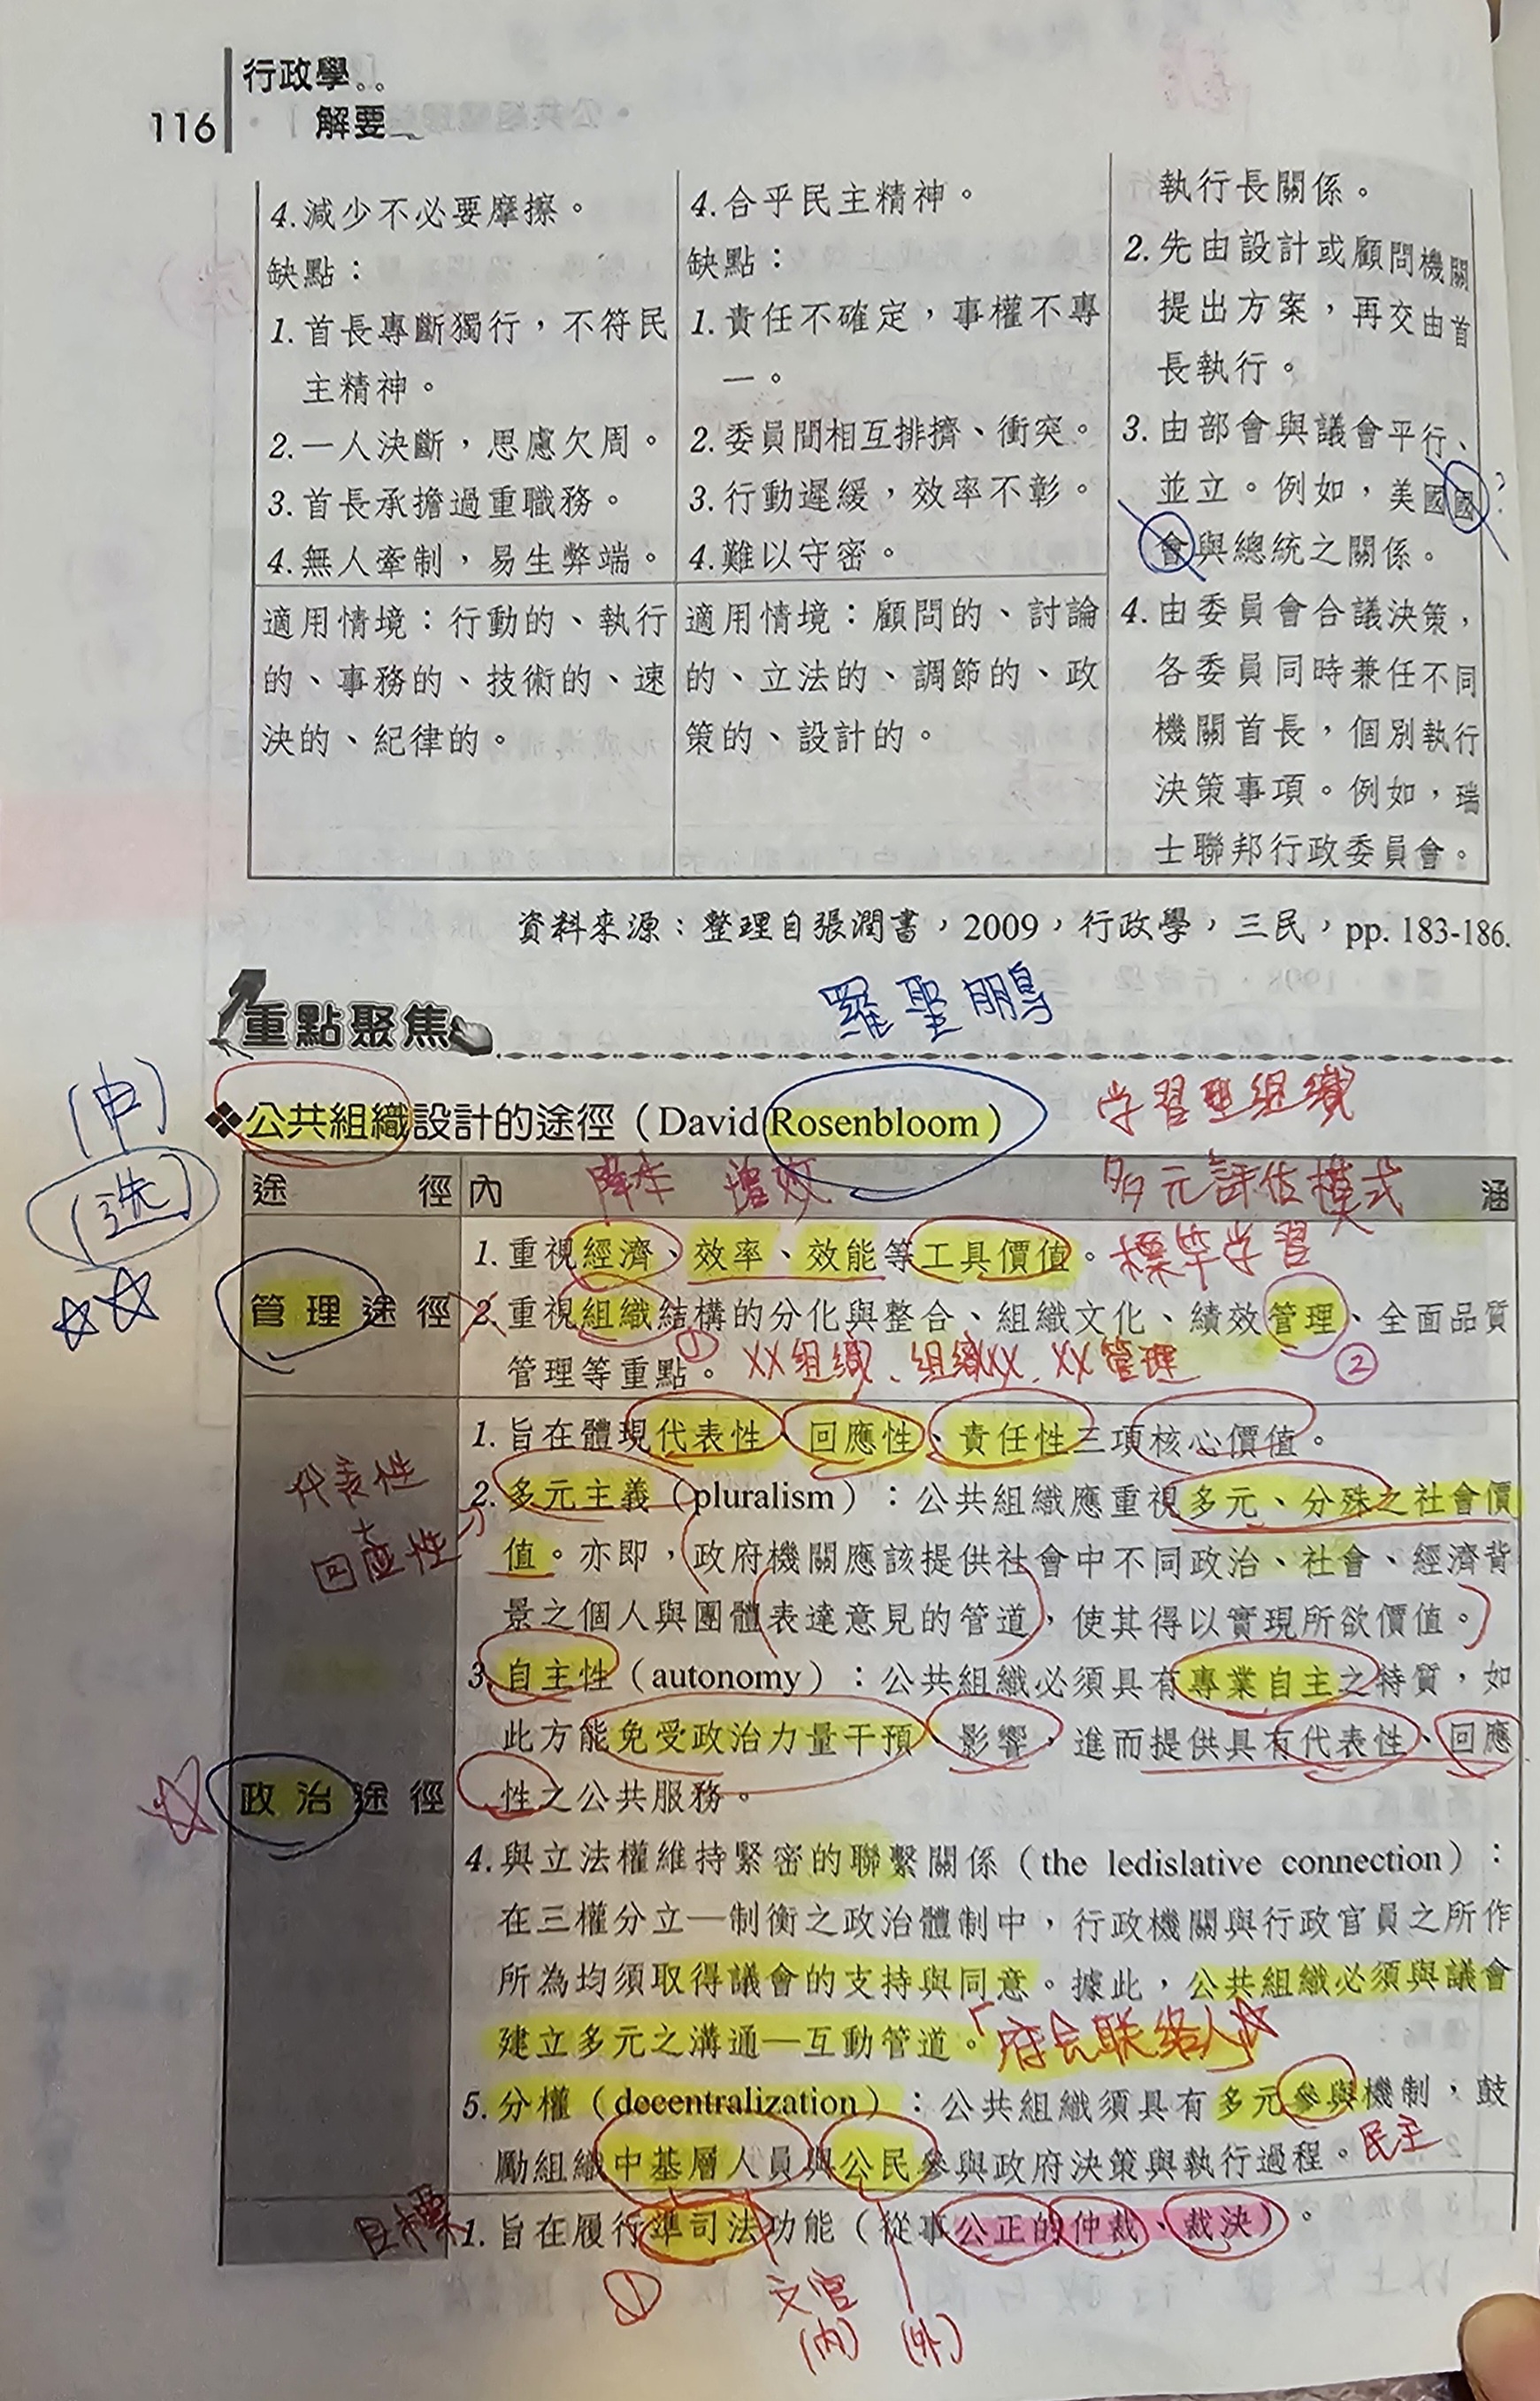 行政學
116 解要
4.減少不必要摩擦。
缺點：
1.首長專斷獨行，不符民
主精神。
2.一人決斷，思慮欠周。
3.首長承擔過重職務。
4.無人牽制，易生弊端。
4.合乎民主精神。
缺點：
1.責任不確定，事權不專
一。
2.委員間相互排擠、衝突。
3.行動遲緩，效率不彰。
4.難以守密。
執行長關係。
2.先由設計或顧問機關
提出方案，再交由首
長執行。
3.由部會與議會平行、
並立。例如，美國國
會與總統之關係。
4.由委員會合議決策，
各委員同時兼任不同
機關首長，個別執行
決策事項。例如，瑞
士聯邦行政委員會。
適用情境：行動的、執行
的、事務的、技術的、速
決的、紀律的。
適用情境：顧問的、討論
的、立法的、調節的、政
策的、設計的。
資料來源：整理自張潤書，2009，行政學，三民，pp. 183-186.
重點聚焦
羅聖鵬
(申)
(选)
❖公共組織設計的途徑（David Rosenbloom）
学習型組織
途徑 內涵
降本 增效
多元評估模式
標竿学習
管理途徑
1.重視經濟、效率、效能等工具價值。
2.重視組織結構的分化與整合、組織文化、績效管理、全面品質
管理等重點。
① XX組織、組織XX、XX管理 ②
政治途徑
代表性
+
回應性
1.旨在體現代表性、回應性、責任性三項核心價值。
2.多元主義（pluralism）：公共組織應重視多元、分殊之社會價
值。亦即，政府機關應該提供社會中不同政治、社會、經濟背
景之個人與團體表達意見的管道，使其得以實現所欲價值。
3.自主性（autonomy）：公共組織必須具有專業自主之特質，如
此方能免受政治力量干預、影響，進而提供具有代表性、回應
性之公共服務。
4.與立法權維持緊密的聯繫關係（the ledislative connection）：
在三權分立—制衡之政治體制中，行政機關與行政官員之所作
所為均須取得議會的支持與同意。據此，公共組織必須與議會
建立多元之溝通—互動管道。
「府会联絡人」
5.分權（decentralization）：公共組織須具有多元參與機制，鼓
勵組織中基層人員與公民參與政府決策與執行過程。
民主
目標
1.旨在履行準司法功能（從事公正的仲裁、裁決）。
①
文官
(內)
(外)